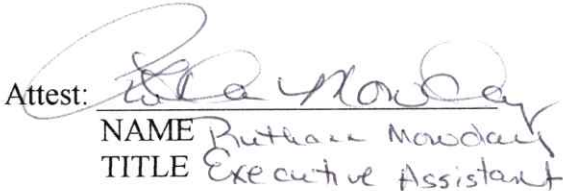 Attest: Ruthann Mowday
NAME Ruthann Mowday
TITLE Executive Assistant